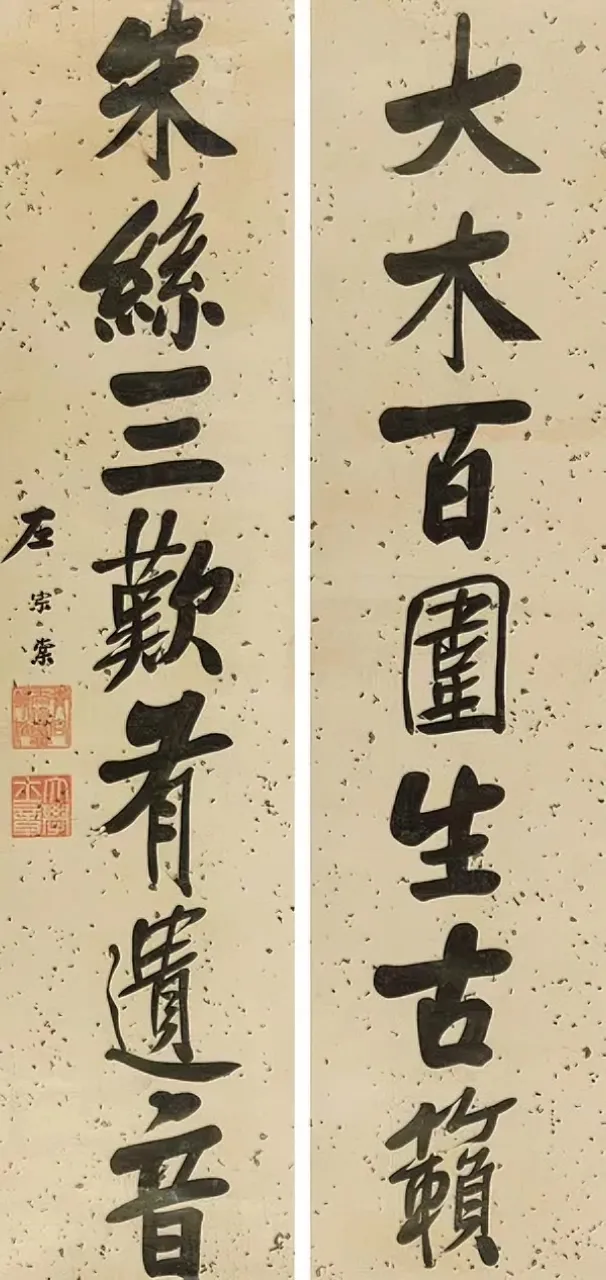 大木百圍生古籟
朱絲三歎有遺音
左宗棠
大學士章